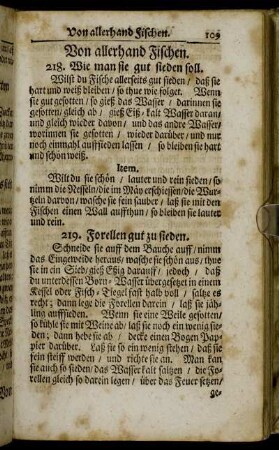 Von allerhand Fischen. 109
Von allerhand Fischen.
218. Wie man sie gut sieden soll.
Wilst du Fische allerseits gut sieden / daß sie
hart und weiß bleiben / so thue wie folget. Wenn
sie gut gesotten / so gieß das Wasser / darinnen sie
gesotten / gleich ab / gieß Eiß-kalt Wasser daran /
und gleich wieder davon / und das andre Wasser /
worinnen sie gesotten / wieder darüber / und nur
noch einmahl auffsieden lassen / so bleiben sie hart
und schön weiß.
Item.
Wilt du sie schön / lauter und rein sieden / so
nimm die Nesseln / die im Mäy erschiessen / die Wur-
tzeln darvon / wasche sie sein sauber / laß sie mit den
Fischen einen Wall auffthun / so bleiben sie lauter
und rein.
219. Forellen gut zu sieden.
Schneide sie auff dem Bauche auff / nimm
das Eingeweide heraus / wasche sie schön aus / thue
sie in ein Sieb / gieß Eßig darauff / jedoch / daß
du unterdessen Born-Wasser übergesetzt in einem
Kessel oder Fisch-Tiegel fast halb voll / saltze es
recht; dann lege die Forellen darein / laß sie jäh-
ling auffsieden. Wenn sie eine Weile gesotten /
so kühle sie mit Weine ab / laß sie noch ein wenig sie-
den; dann hebe sie ab / decke einen Bogen Pap-
pier darüber. Laß sie so ein wenig stehen / daß sie
fein steiff werden / und richte sie an. Man kan
sie auch so sieden / das Wasser kalt saltzen / die Fo-
rellen gleich so darein legen / über das Feuer setzen /
ge-